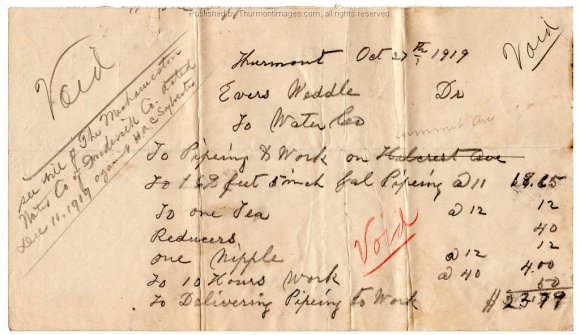 Published by ThurmontImages.com, all rights reserved
Void
Void
Thurmont Oct 27th 1919
Evers Weddle Dr
To Water Co
see bill of The Mechanicstown
Water Co of Frederick Co. dated
Dec 11, 1919 against
Summit Ave
To Pipeing & Work on Halcrest Ave
To 168 feet 3/4 inch Gal Pipeing @ 11 18.65
To one Tea @ 12 12
Reducers 40
one Nipple @ 12 12
To 10 Hours Work @ 40 4.00
To Delivering Pipeing to Work 50
$23.79
Void